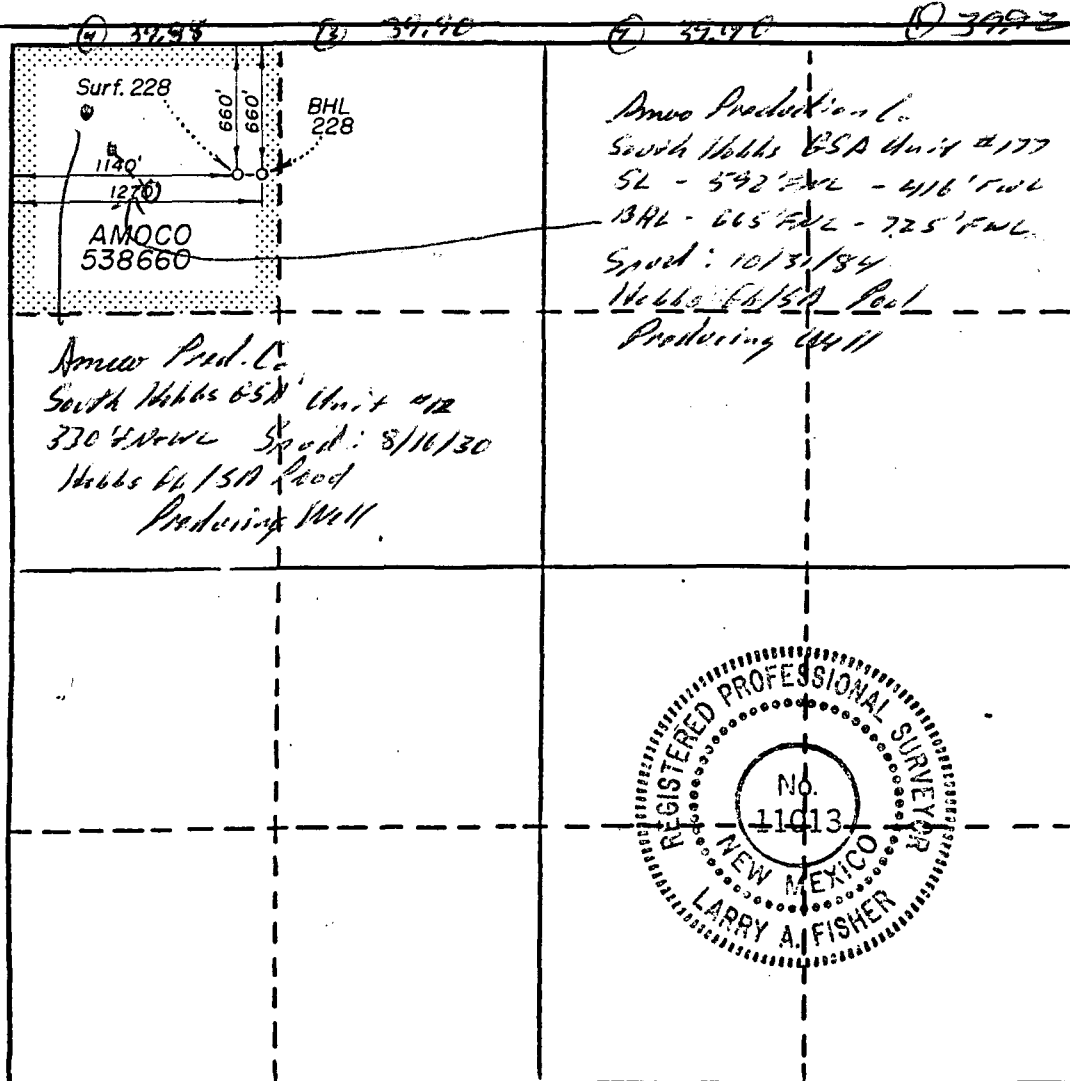 ④ 39.88 ③ 39.90 39.90 ① 39.92
Surf. 228
660'
660'
BHL
228
1140'
1270'
AMOCO
538660
Amoco Production Co.
South Hobbs GSA Unit #177
SL - 592' FNL - 416' FWL
BHL - 665' FNL - 725' FWL
Spud: 10/31/84
Hobbs Gb/SA Pool
Producing Well
Amoco Prod. Co
South Hobbs GSA Unit #12
330' FN+WL Spud: 8/16/30
Hobbs Gb/SA Pool
Producing Well
REGISTERED PROFESSIONAL SURVEYOR
No.
11013
NEW MEXICO
LARRY A. FISHER